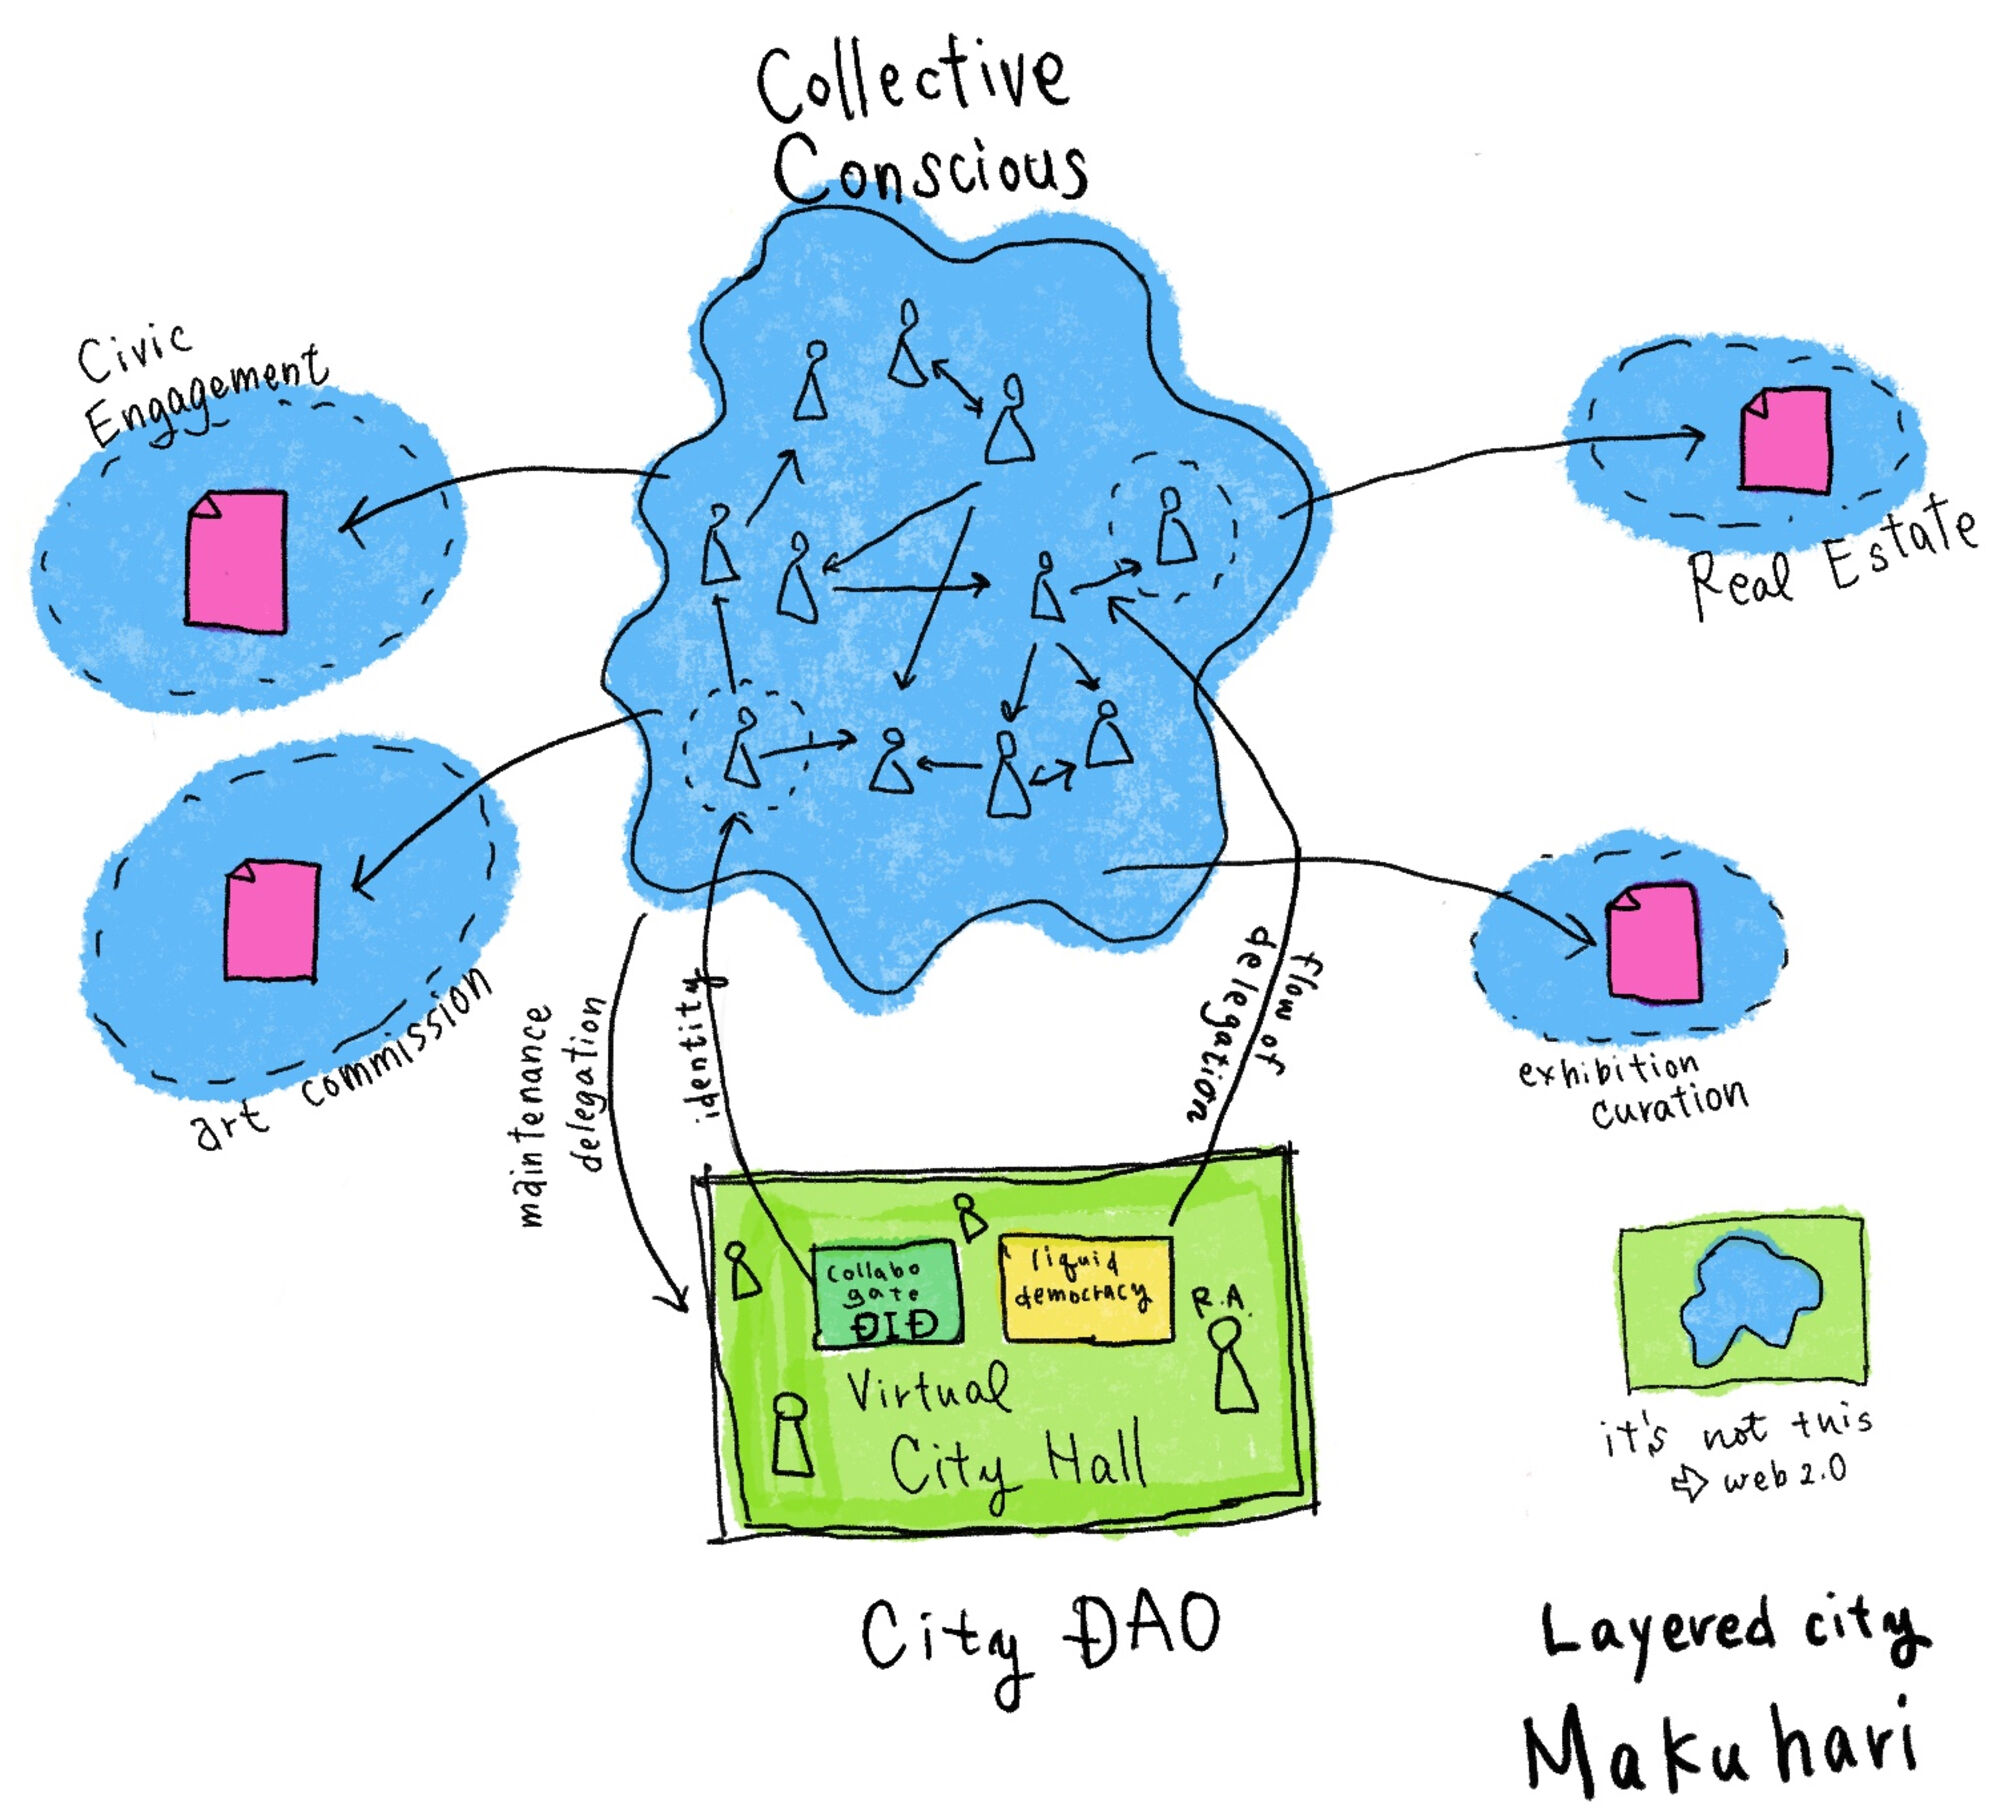 Collective
Conscious
Civic
Engagement
Real Estate
art commission
exhibition
curation
maintenance
delegation
identity
flow of
delegation
Collabo
gate
ÐIÐ
liquid
democracy
R.A.
Virtual
City Hall
City ÐAO
it's not this
⇨ web 2.0
Layered city
Makuhari